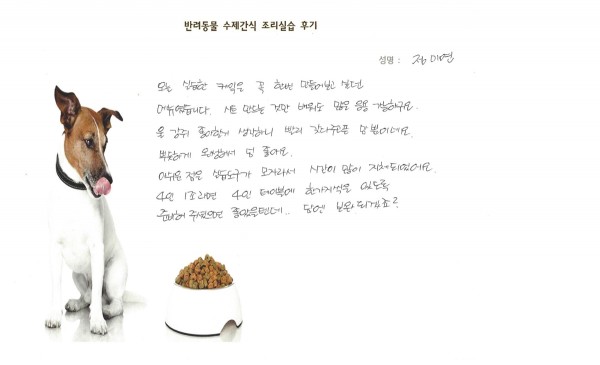 반려동물 수제간식 조리실습 후기
성명 : 정미연
오늘 실습한 케익은 꼭 한번 만들어보고 싶던
메뉴였습니다. 시트 만드는 것만 배워도 많은 응용 가능하구요.
울 강쥐 좋아할거 생각하니 빨리 갖다주고픈 맘 뿐이네요.
뿌듯하게 완성해서 넘 좋아요.
아쉬운 점은 실습도구가 모자라서 시간이 많이 지체되었어요.
4인 1조라면 4인 테이블에 한가지씩은 있도록
준비해 주셨으면 좋았을텐데.. 담엔 보완되겠죠?